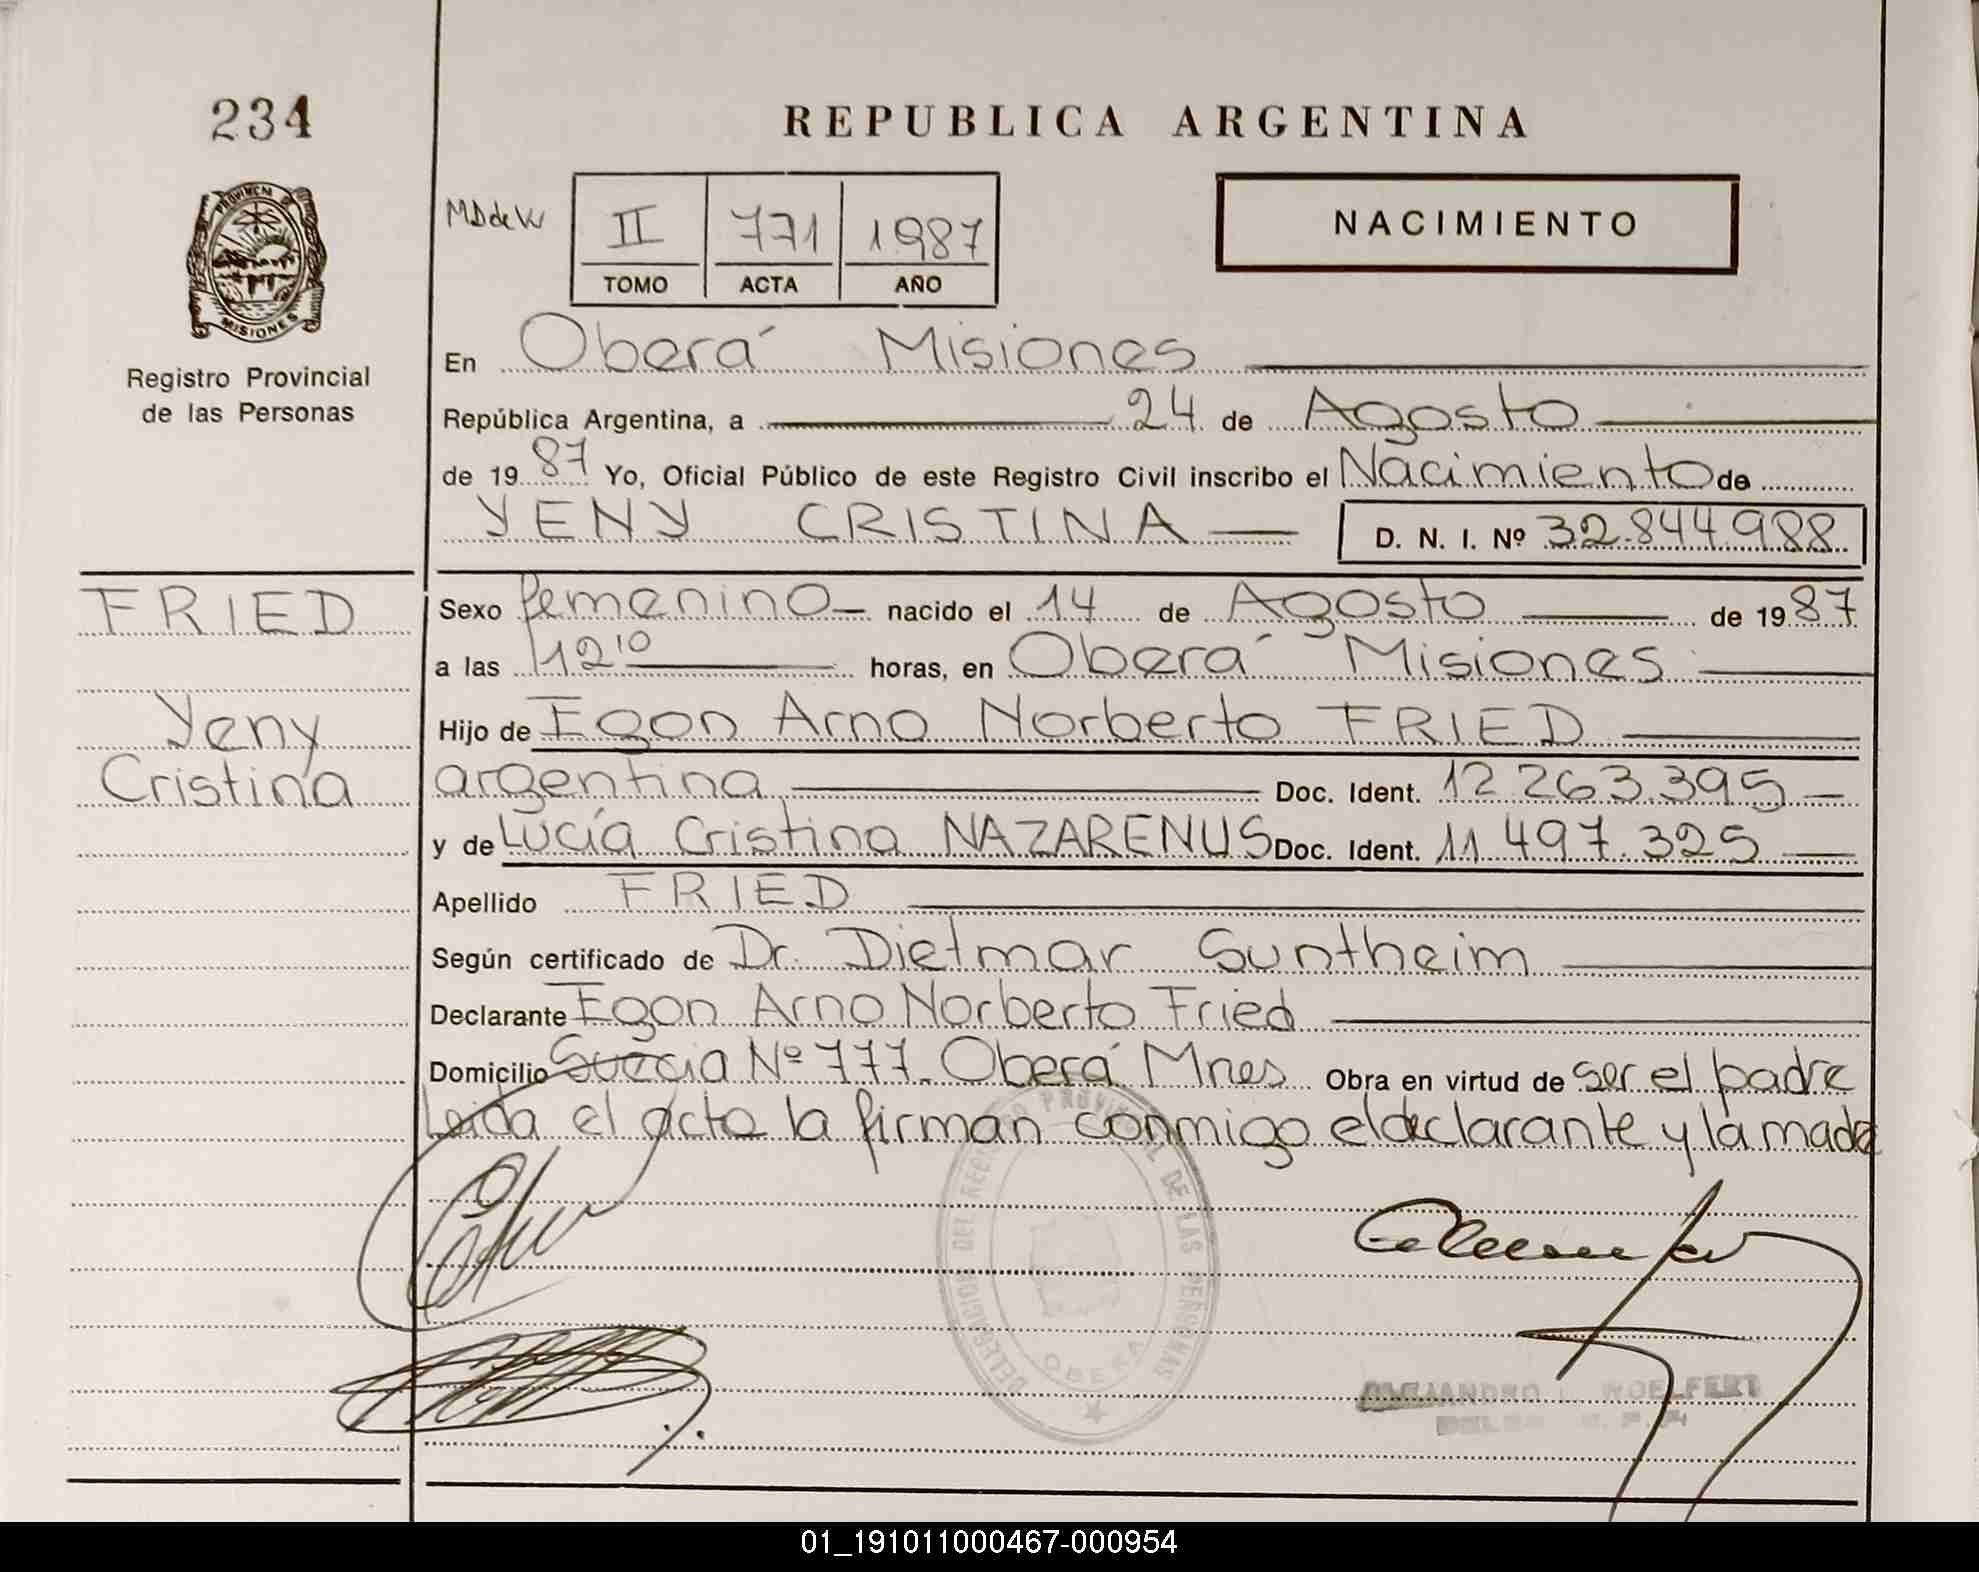 234
REPUBLICA ARGENTINA
PROVINCIA DE
MISIONES
Registro Provincial
de las Personas
MD de W
II 771 1987
TOMO ACTA AÑO
NACIMIENTO
En Oberá Misiones
República Argentina, a 24 de Agosto
de 1987 Yo, Oficial Público de este Registro Civil inscribo el Nacimiento de
YENY CRISTINA D. N. I. Nº 32.844.988
FRIED
Yeny
Cristina
Sexo femenino nacido el 14 de Agosto de 1987
a las 12 10 horas, en Oberá Misiones
Hijo de Egon Arno Norberto FRIED
argentina Doc. Ident. 12.263.395
y de Lucía Cristina NAZARENUS Doc. Ident. 11.497.325
Apellido FRIED
Según certificado de Dr. Dietmar Suntheim
Declarante Egon Arno Norberto Fried
Domicilio Suecia Nº 777. Oberá Mnes Obra en virtud de ser el padre
Leida el acta la firman conmigo el declarante y la madre
DELEGACION DEL REGISTRO PROVINCIAL DE LAS PERSONAS
OBERA
ALEJANDRO WOELFERT
01_191011000467-000954